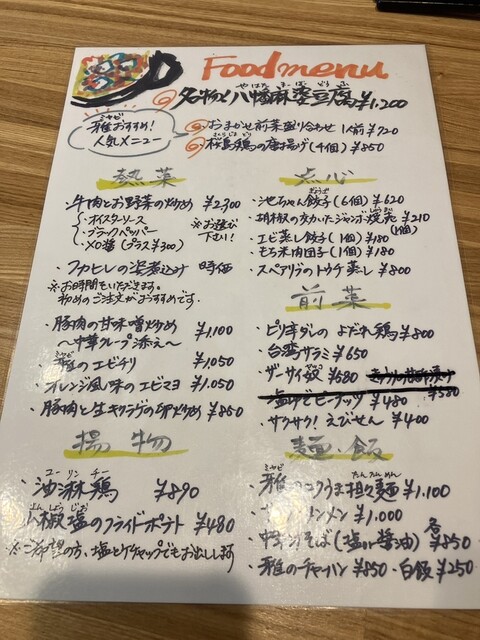 Food menu
名物! 八幡麻婆豆腐 ¥1.200
やはた まーぼーどうふ
ミヤビ
雅おすすめ!
人気メニュー
おまかせ前菜盛り合わせ 1人前 ¥720
桜島鶏の唐揚げ(4個) ¥850
熱菜
・牛肉とお野菜の炒め ¥2,300
・オイスターソース
・ブラックペッパー
・XO醤(プラス¥300)
※お選び下さい!
・フカヒレの姿煮込み 時価
※お時間もいただきます。
初めのご注文がおすすめです。
・豚肉の甘味噌炒め ¥1,100
〜中華クレープ添え〜
ミヤビ
・雅のエビチリ ¥1,050
・オレンジ風味のエビマヨ ¥1,050
・豚肉と生キクラゲの卵炒め ¥850
揚物
ユーリンチー
・油淋鶏 ¥890
山椒塩のフライドポテト ¥480
※ご希望の方、塩とケチャップでもお出しします
点心
・池ちゃん餃子(6個) ¥620
・胡椒の効いたジャンボ焼売 ¥210
(1個)
・エビ蒸し餃子(1個) ¥180
・もち米肉団子(1個) ¥180
・スペアリブのトウチ蒸し ¥800
前菜
・ピリ辛ダレのよだれ鶏 ¥800
・台湾サラミ ¥650
・ザーサイ ¥580
¥580
・塩ゆでピーナッツ ¥480
・サクサク!えびせん ¥400
麺・飯
ミヤビ たんたんめん
・雅のコクうま担々麺 ¥1,100
ンメン ¥1,000
・中華そば(塩or醤油) 各¥850
・雅のチャーハン ¥850 ・白飯 ¥250